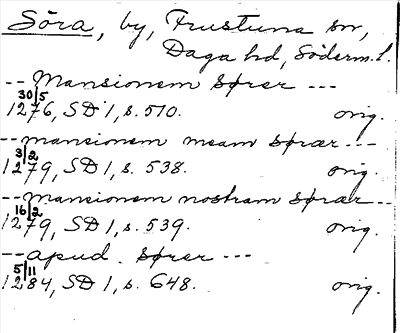 Söra, by, Frustuna sn,
Daga hd, Söderm.l.
-- Mansionem sører ---
30/5
1276, SD 1, s. 510. orig.
-- mansionem meam sørær ---
3/2
1279, SD 1, s. 538. orig.
-- mansionem nostram sørær --
16/2
1279, SD 1, s. 539. orig.
-- apud. sører ---
5/11
1284, SD 1, s. 648. orig.